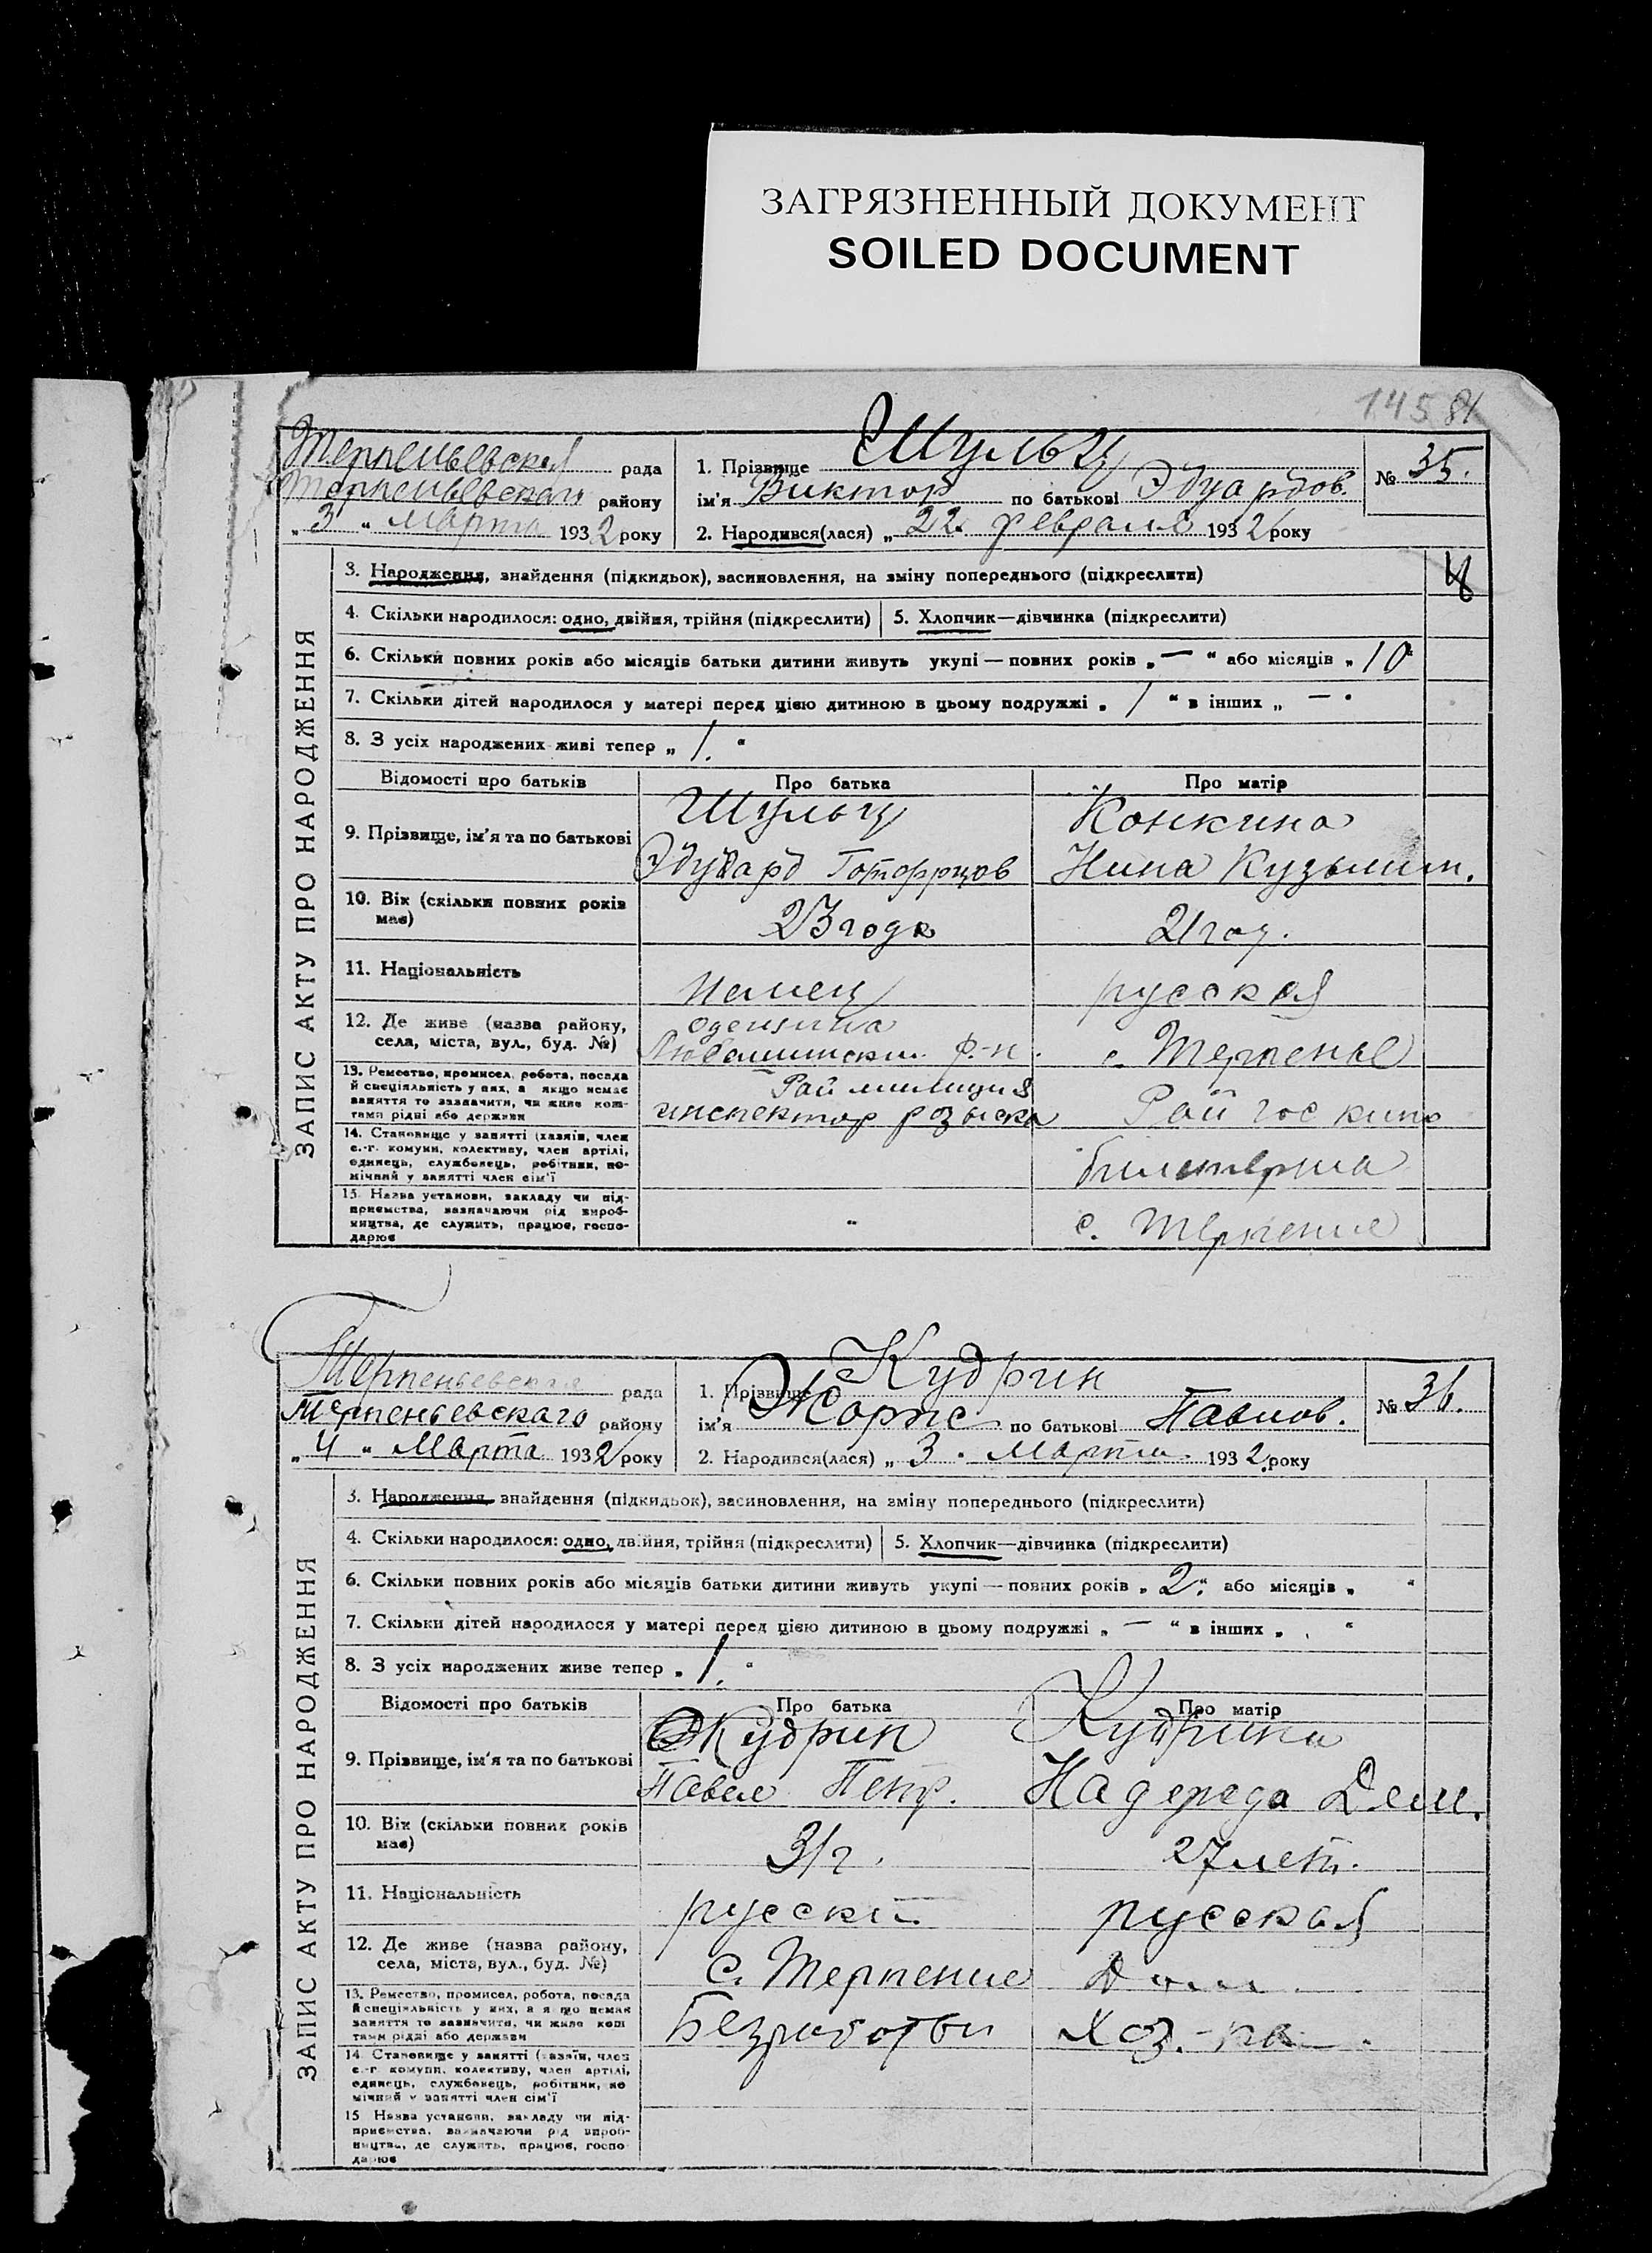 ЗАГРЯЗНЕННЫЙ ДОКУМЕНТ
SOILED DOCUMENT
145 81
ЗАПИС АКТУ ПРО НАРОДЖЕННЯ
Терпеньевская рада
Терпеньевскаго району
„3“ марта 1932 року
1. Прізвище Шульц
ім'я Виктор по батькові Эдуардов.
2. Народився(лася) „22. февраля 1932 року
№ 35.
3. Народження, знайдення (підкидьок), васиновлення, на зміну попереднього (підкреслити)
4. Скільки народилося: одно, двійня, трійня (підкреслити) 5. Хлопчик—дівчинка (підкреслити)
6. Скільки повних років або місяців батьки дитини живуть укупі — повних років „—“ або місяців „10“
7. Скільки дітей народилося у матері перед цією дитиною в цьому подружжі „1“ в інших „—“
8. З усіх народжених живі тепер „1.“
Відомості про батьків Про батька Про матір
9. Прізвище, ім'я та по батькові
Шульц
Эдуард
Конкина
Нина Кузьмин.
10. Вік (скільки повних років має)
23 года
21 год.
11. Національність
немец
русская
12. Де живе (назва району, села, міста, вул., буд. №)
р-н.
с. Терпенье
13. Ремество, промисел, робота, посада й спеціяльність у них, а якщо немає заняття то зазначити, чи живе коштами рідні або держави
Рай милиция
инспектор розыска
Рай гос кино
14. Становище у занятті (хазяїн, член с.-г. комуни, колективу, член артілі, одинець, службовець, робітник, помічний у занятті член сім'ї
билетерша
15. Назва установи, закладу чи підприємства, зазначаючи рід виробництва, де служить, працює, господарює
“
с. Терпение
ЗАПИС АКТУ ПРО НАРОДЖЕННЯ
Терпеньевская рада
Терпеньевскаго району
„4“ Марта 1932 року
1. Прізвище Кудрин
ім'я Жорж по батькові Павлов.
2. Народився(лася) „3“ марта 1932 року
№ 36.
3. Народження, знайдення (підкидьок), васиновлення, на зміну попереднього (підкреслити)
4. Скільки народилося: одно, двійня, трійня (підкреслити) 5. Хлопчик—дівчинка (підкреслити)
6. Скільки повних років або місяців батьки дитини живуть укупі — повних років „2“ або місяців „ “
7. Скільки дітей народилося у матері перед цією дитиною в цьому подружжі „—“ в інших „ “
8. З усіх народжених живе тепер „1.“
Відомості про батьків Про батька Про матір
9. Прізвище, ім'я та по батькові
Кудрин
Павел Петр.
Кудрина
Надежда Дем.
10. Вік (скільки повних років має)
31 г.
27 лет.
11. Національність
русский
русская
12. Де живе (назва району, села, міста, вул., буд. №)
с. Терпение
Дом.
13. Ремество, промисел, робота, посада й спеціяльність у них, а якщо немає заняття то зазначити, чи живе коштами рідні або держави
Безработн
хоз.-ка.
14. Становище у занятті (хазяїн, член с.-г. комуни, колективу, член артілі, одинець, службовець, робітник, помічний у занятті член сім'ї
15 Назва установи, закладу чи підприємства, зазначаючи рід виробництва, де служить, працює, господарює